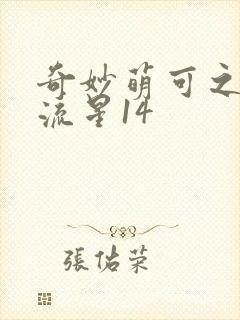 奇妙萌可之
流星14
張佑荣